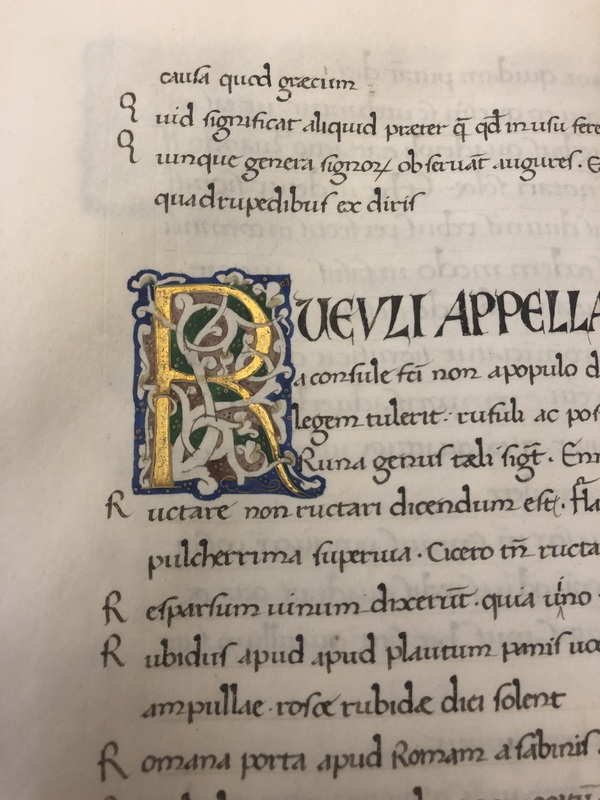 causa quod græcum
Quid significat aliquid præter q̄ qđ in usu fere
Quinque genera signoꝝ obseruāt augures. E
quadrupedibus ex diris
RVEVLI APPELLA
a consule fcī non apopulo d
legem tulerit· rufuli ac pos
Runa genus tæli sigt̄. Enn
Ructare non ructari dicendum est.
pulcherrima superiua. Cicero tn̄ ructa
Resparsum uinum dixerūt. quia uino
Rubidus apud apud plautum panis uoc
ampullae· rosæ rubidæ dici solent
Romana porta apud Romam a sabinis